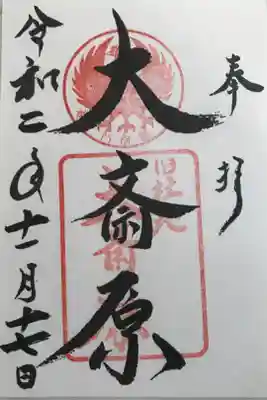 奉拝
大斎原
旧社地
令和二年十一月十七日